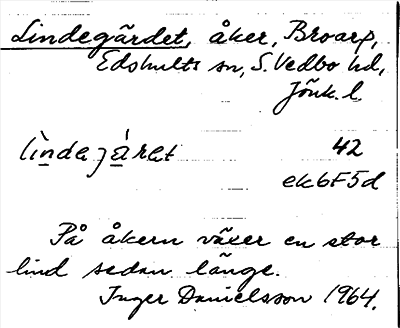 Lindegärdet, åker, Broarp,
Edshults sn, S. Vedbo hd,
Jönk. l.
lìndejáret 42
ek6F5d
På åkern växer en stor
lind sedan länge.
Inger Danielsson 1964.